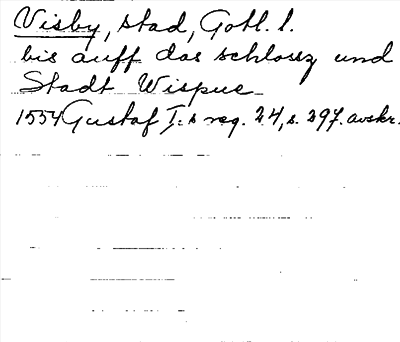 Visby, stad, Gotl. l.
bis auff das schlossz und
Stadt Wispue
1554 Gustaf I:s reg. 24, s. 297. avskr.